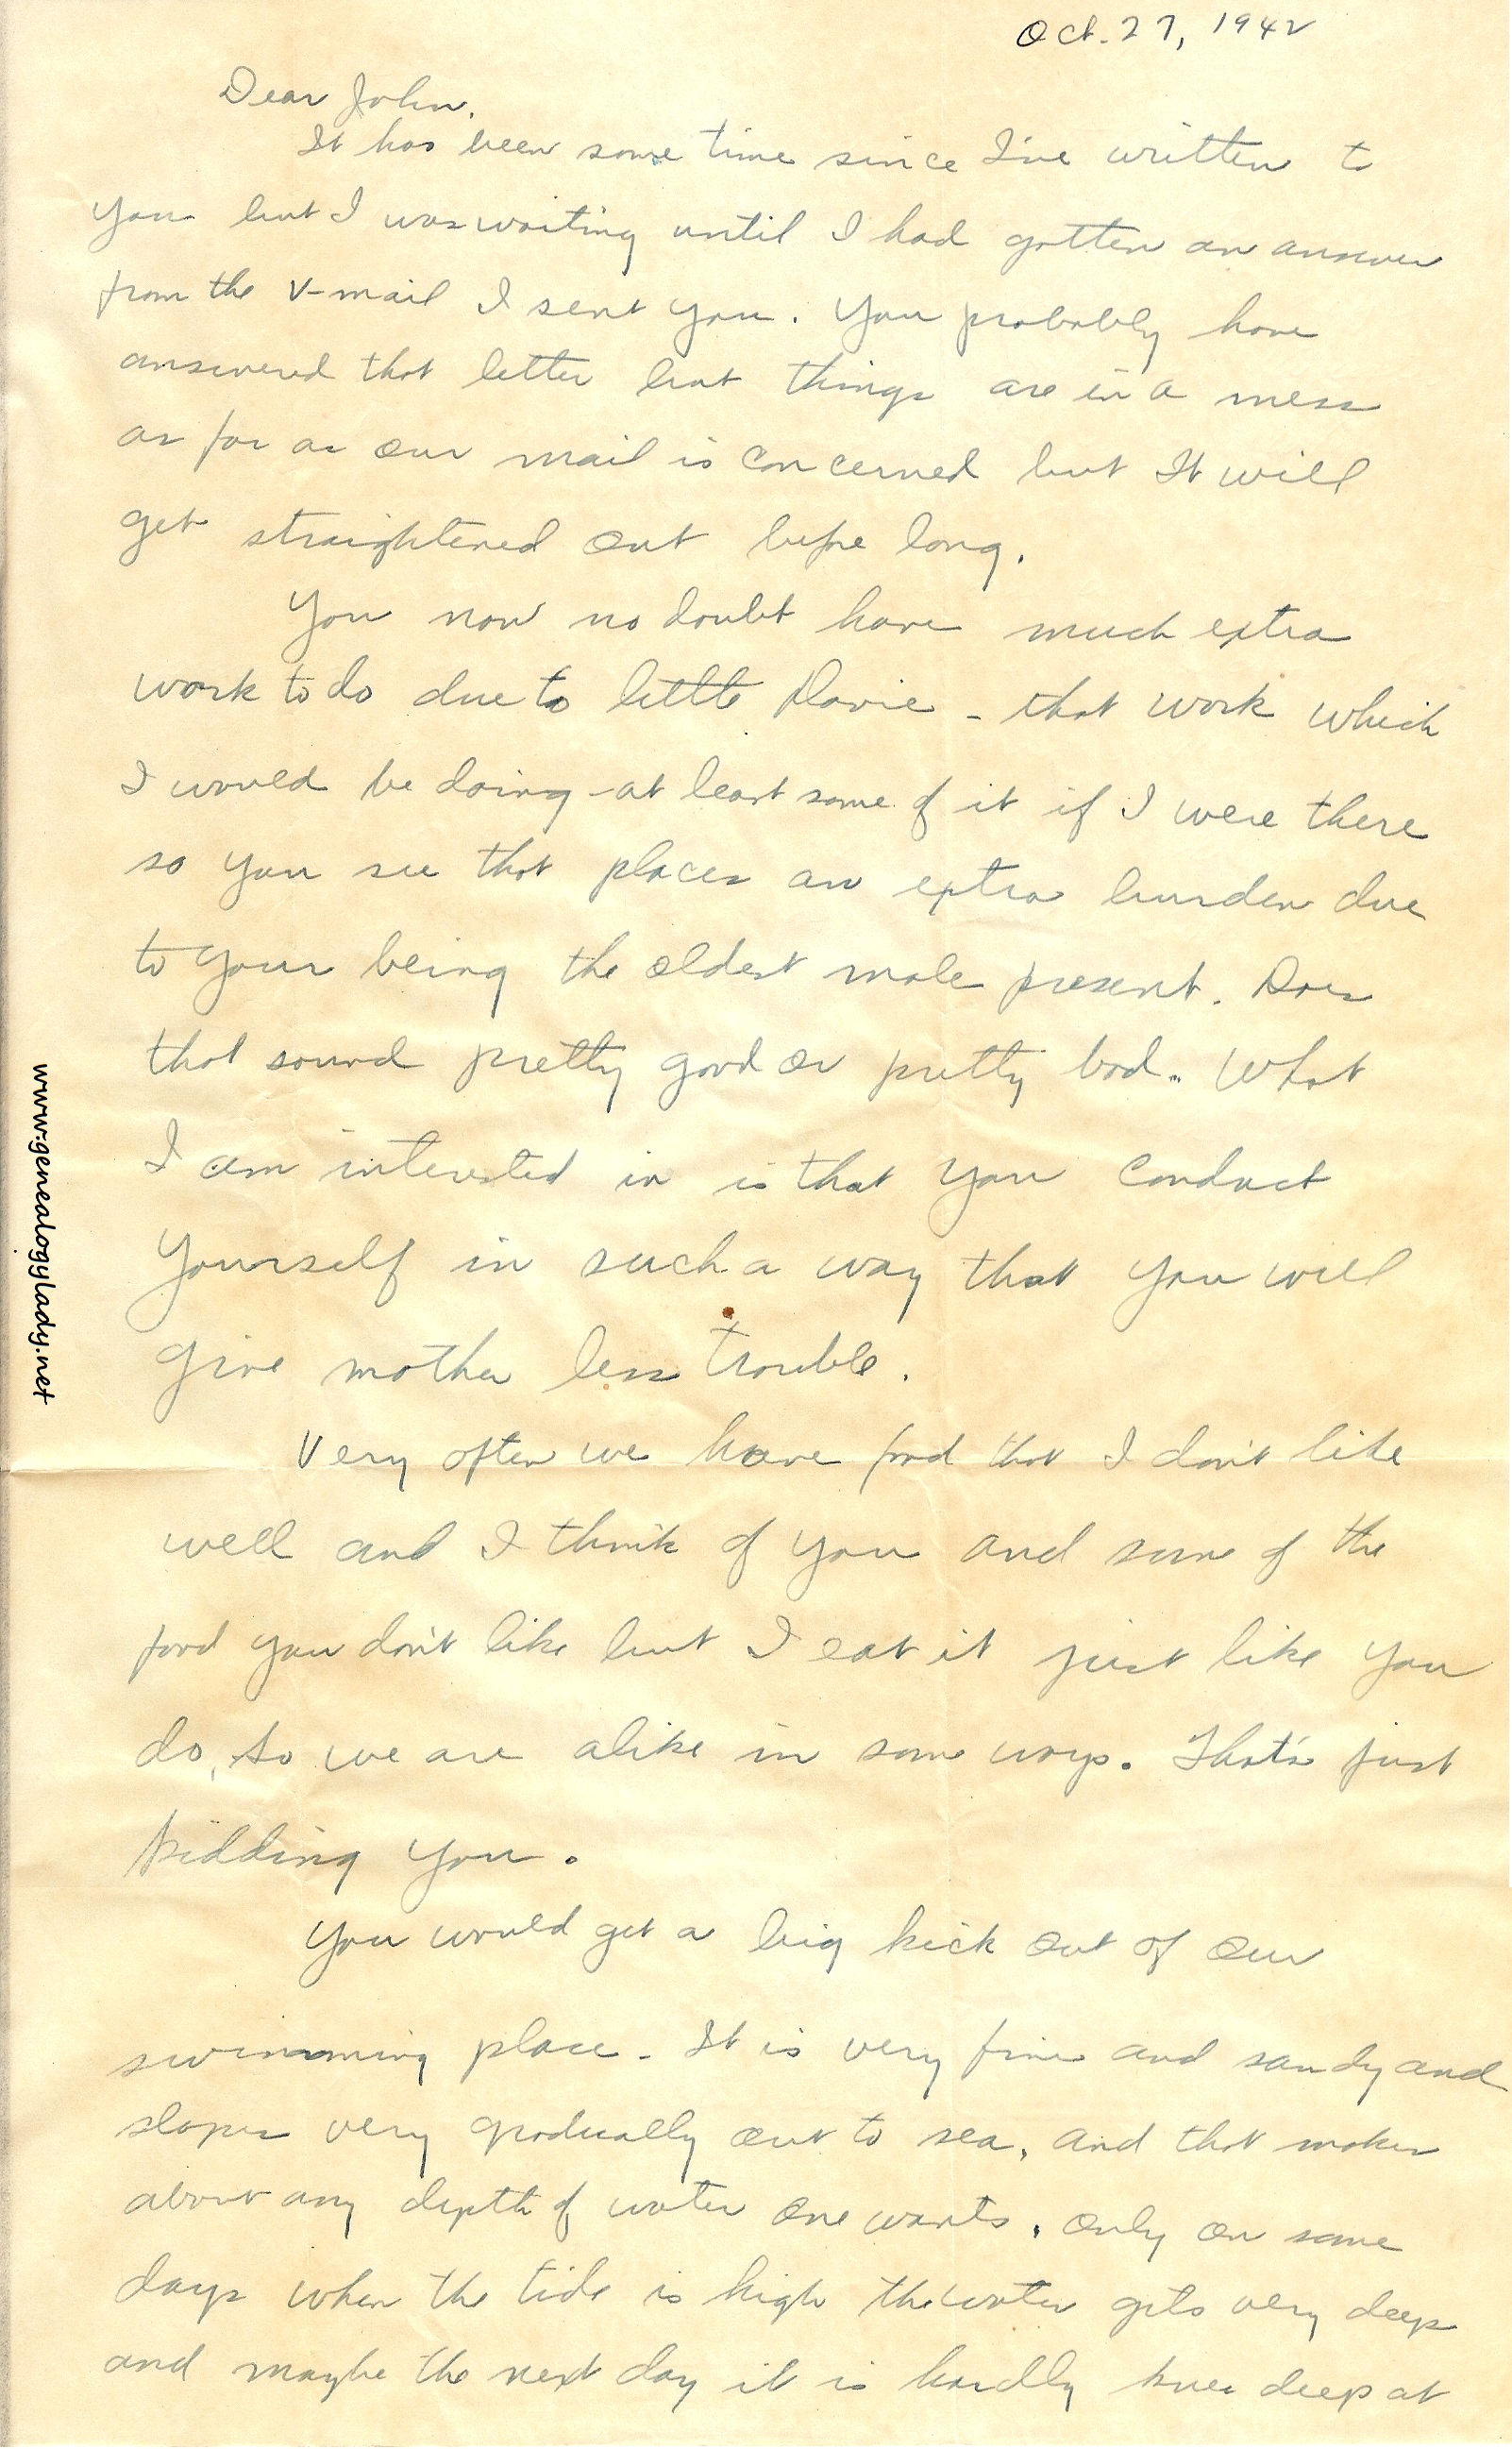 Oct. 27, 1942
Dear John,
It has been some time since I've written to
you but I was waiting until I had gotten an answer
from the V-mail I sent you. You probably have
answered that letter but things are in a mess
as far as our mail is concerned but It will
get straightened out before long.
You now no doubt have much extra
work to do due to little Davie - that work which
I would be doing - at least some of it if I were there
so you see that places an extra burden due
to your being the oldest male present. Does
that sound pretty good or pretty bad.. What
I am interested in is that you conduct
yourself in such a way that you will
give mother less trouble.
Very often we have food that I don't like
well and I think of you and some of the
food you don't like but I eat it just like you
do, so we are alike in some ways. That's just
kidding you.
You would get a big kick out of our
swimming place - It is very fine and sandy and
slopes very gradually out to sea, and that makes
about any depth of water one wants, only on some
days when the tide is high the water gets very deep
and maybe the next day it is hardly knee deep at
www.genealogylady.net